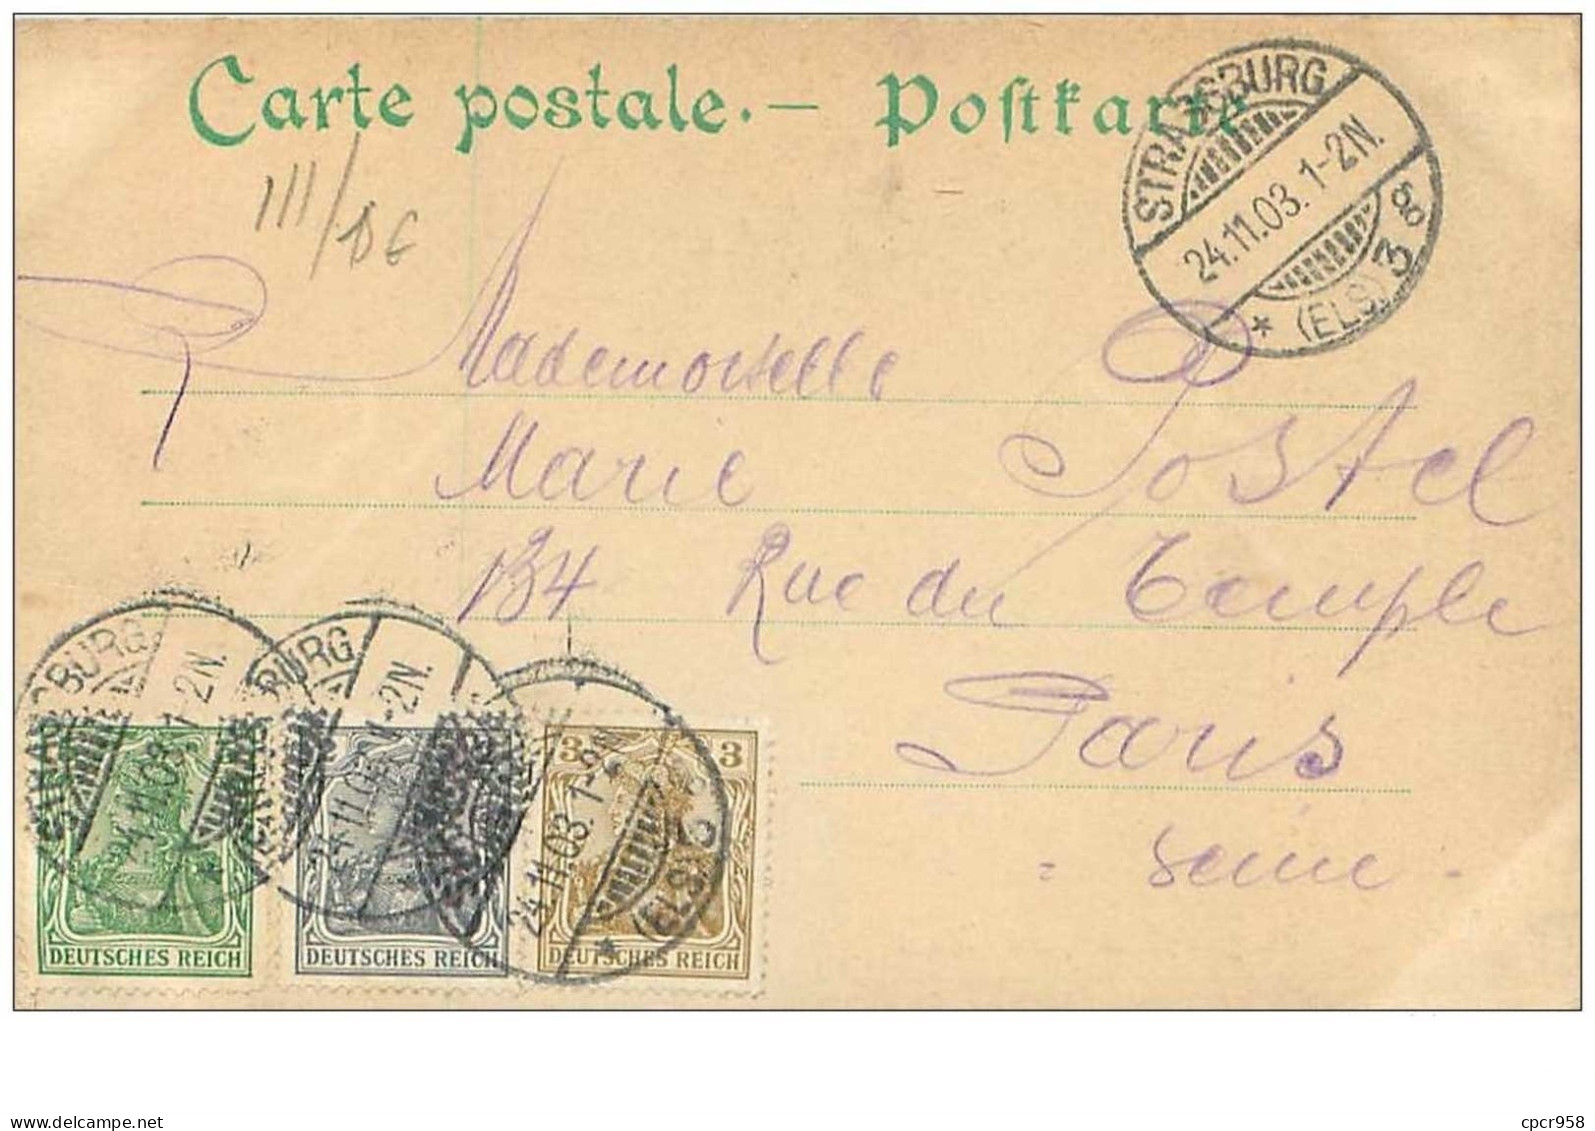 Carte postale.— Postkarte
STRASSBURG
24.11.03. 1-2N.
* (ELS) 3g
III/
Mademoiselle
Marie Postel
134 Rue du Temple
Paris
= Seine -
STRASSBURG 24.11.03. 1-2N.
STRASSBURG 24.11.03. 1-2N.
24.11.03. 1-2N. * (ELS) 3
3 3
DEUTSCHES REICH
DEUTSCHES REICH
DEUTSCHES REICH
cpcr958